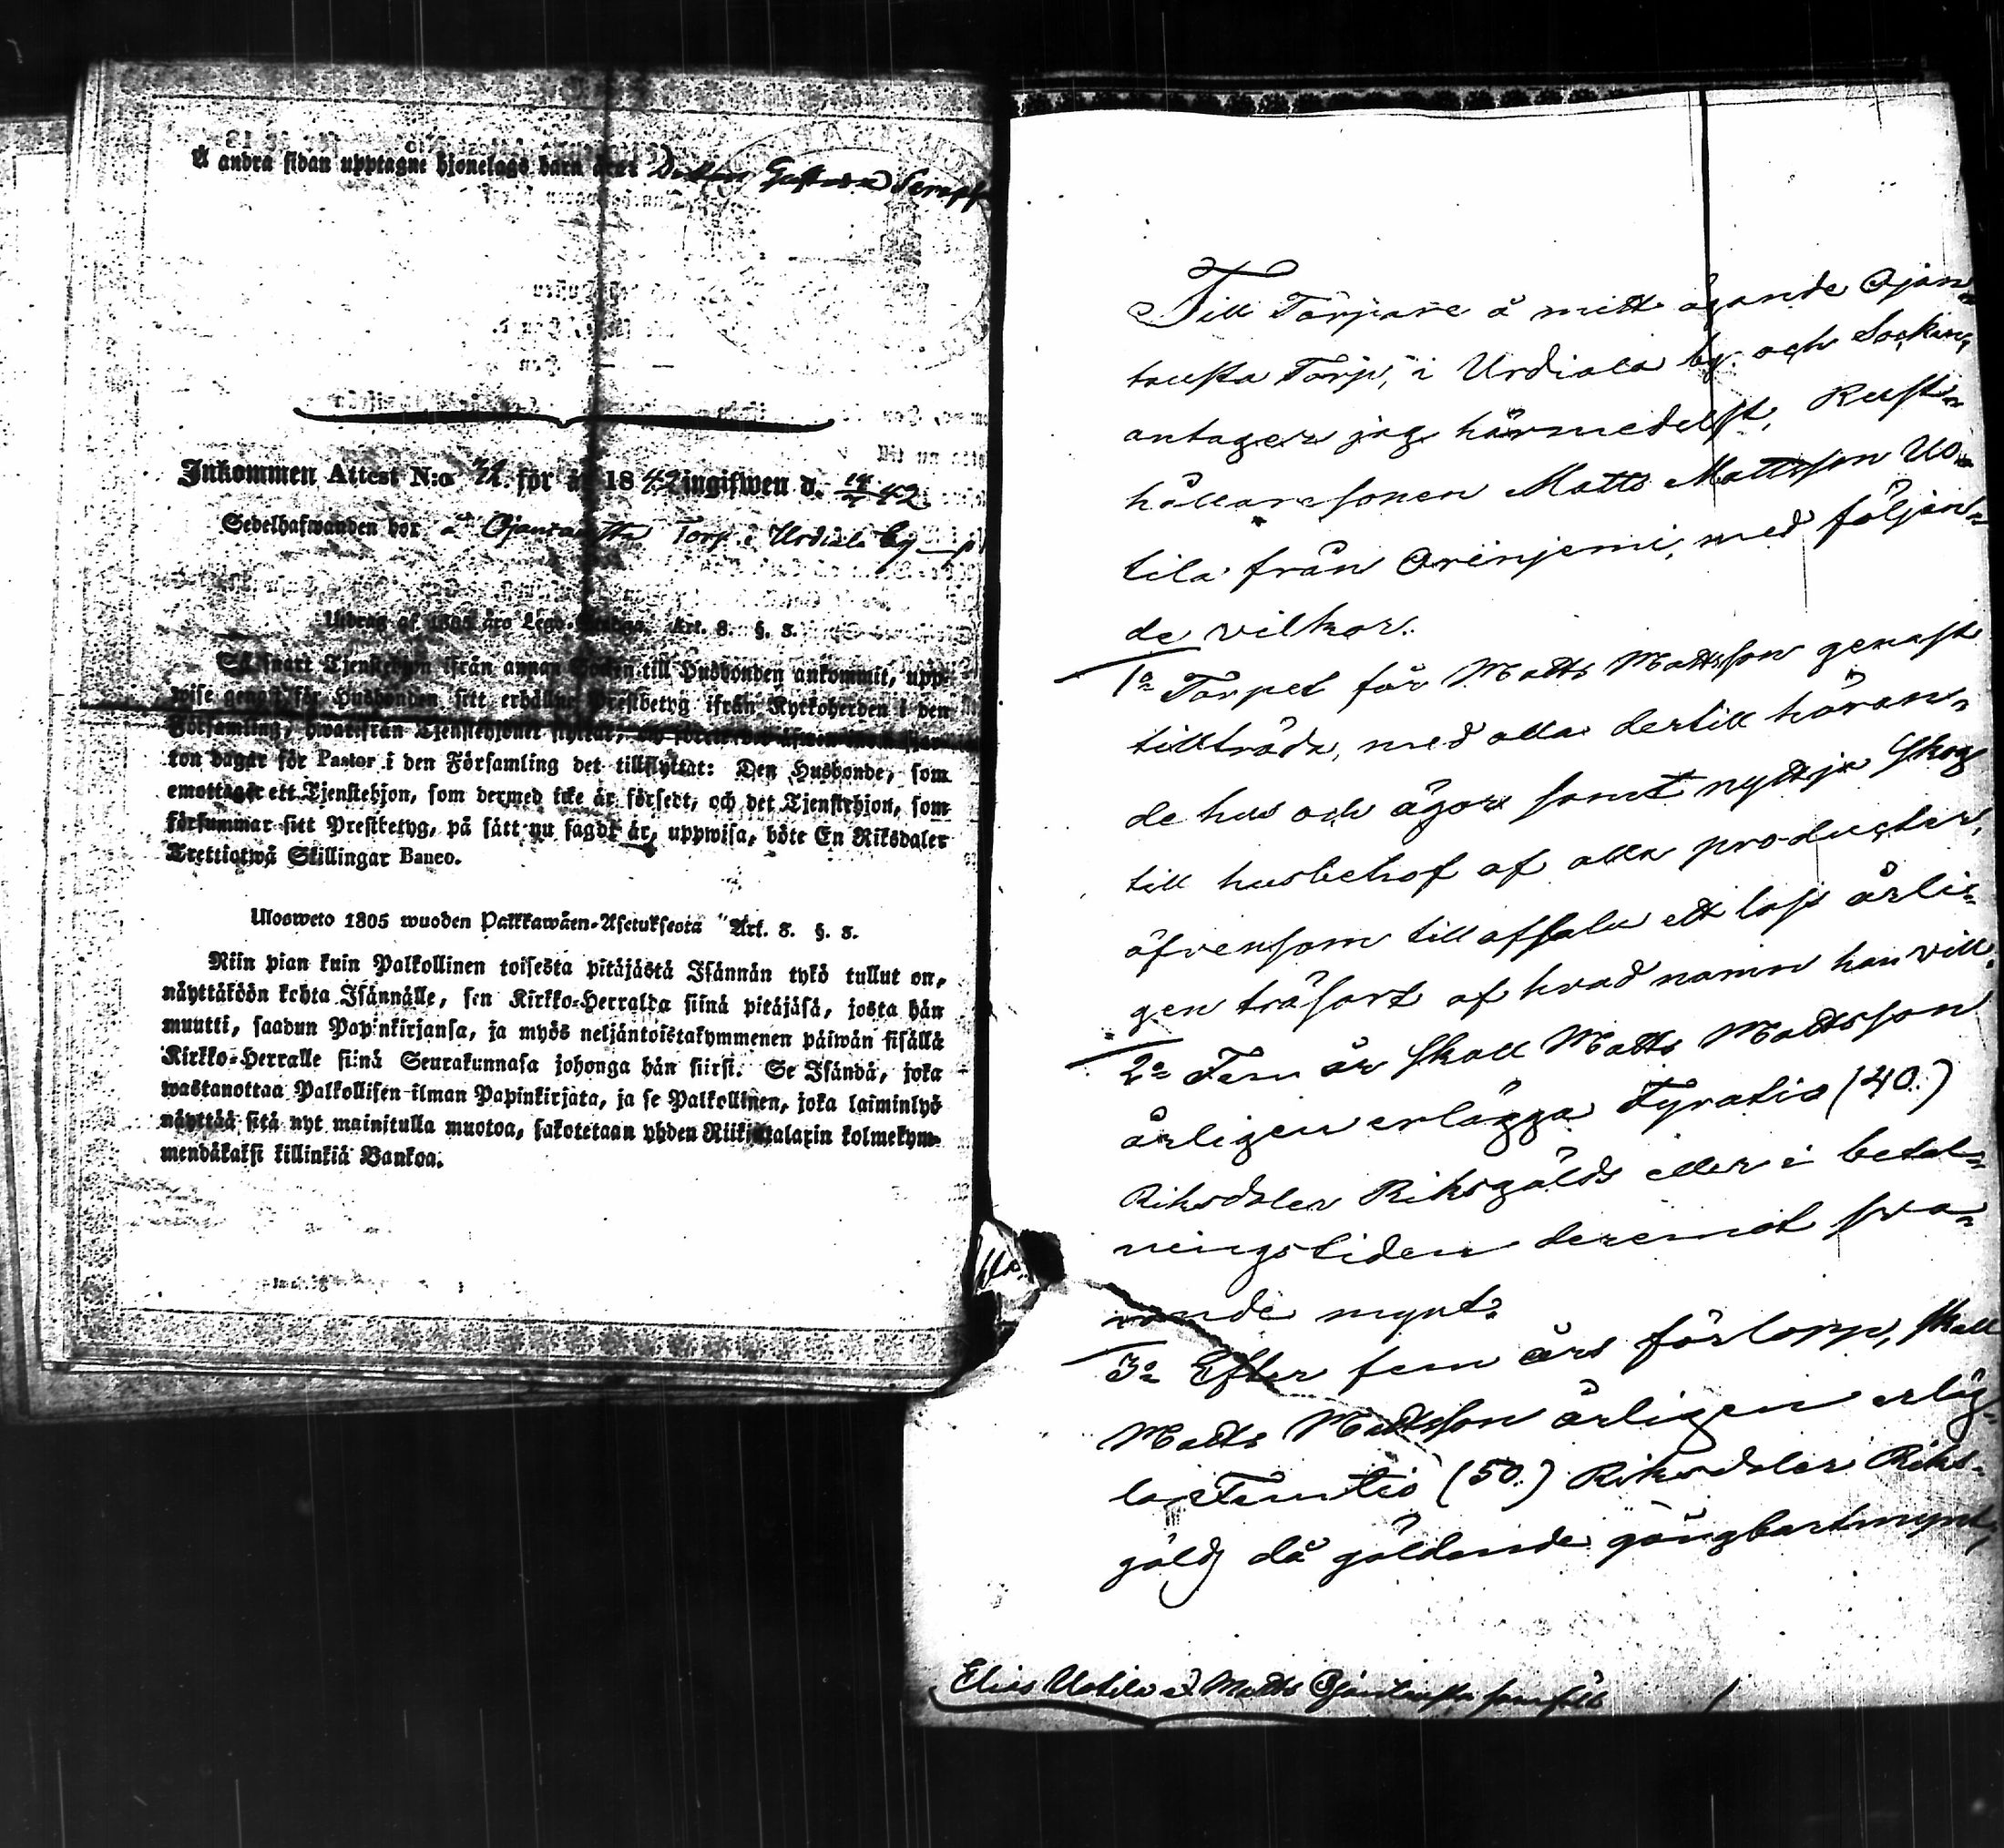 Å andra sidan upptagne hjonelags barn äro: Dottren Gustava Seraf
Inkommen Attest N:o 32 för år 1842 ingifwen d. 42
Sedelhafwanden bor å Ojantausta Torp i Urdiala by
Utdrag af 1805 års Lego-Stadga. Art. 8. §. 3.
Så snart Tjenstehjon ifrån annan Socken till Husbonden ankommit, upp-
wise genast för Husbonden sitt erhållne Prestbetyg ifrån Kyrkoherden i den
Församling, hwarifrån Tjenstehjonet flyttat,
ton dagar för Pastor i den Församling det tillflyttat: Den Husbonde, som
emottager ett Tjenstehjon, som dermed icke är försedt, och det Tjenstehjon, som
försummar sitt Prestbetyg, på sätt nu sagdt är, uppwisa, böte En Riksdaler
Trettiotwå Skillingar Banco.
Ulosweto 1805 wuoden Palkkawäen-Asetuksesta Art. 8. §. 3.
Niin pian kuin Palkollinen toisesta pitäjästä Isännän tykö tullut on,
näyttäköön kohta Isännälle, sen Kirkko-Herralda siinä pitäjäsä, josta hän
muutti, saadun Papinkirjansa, ja myös neljäntoistakymmenen päiwän sisällä
Kirkko-Herralle siinä Seurakunnasa johonga hän siirsi. Se Isändä, joka
wastanottaa Palkollisen ilman Papinkirjata, ja se Palkollinen, joka laiminlyö
näyttää sitä nyt mainitulla muotoa, sakotetaan yhden Riikintalarin kolmekym-
mendäkaksi killinkiä Bankoa.
Till Torpare å mitt ägande Ojan-
tausta Torp, i Urdiala by och Socken,
antager jag härmedelst, Rust-
hållaresonen Matts Mattsson Uo-
tila från Orinjemi, med följan-
de vilkor.
1o Torpet får Matts Mattsson genast
tillträda, med alla dertill höran-
de hus och ägor samt nyttja skog
till husbehof af alla producter,
äfvensom till afsalu ett lass årli-
gen träsort af hvad namn han vill.
2o Fem år skall Matts Mattsson
årligen erlägga Fyratio (40.)
Riksdaler Riksgälds eller i betal-
ningstiden deremot sva-
rande mynt.
3o Efter fem års förlopp, skall
Matts Mattsson årligen erläg-
la Femtio (50.) Riksdaler Riks-
gäld då gäldande gångbart mynt,
Elias Uotila o Matts Ojantausta samfält